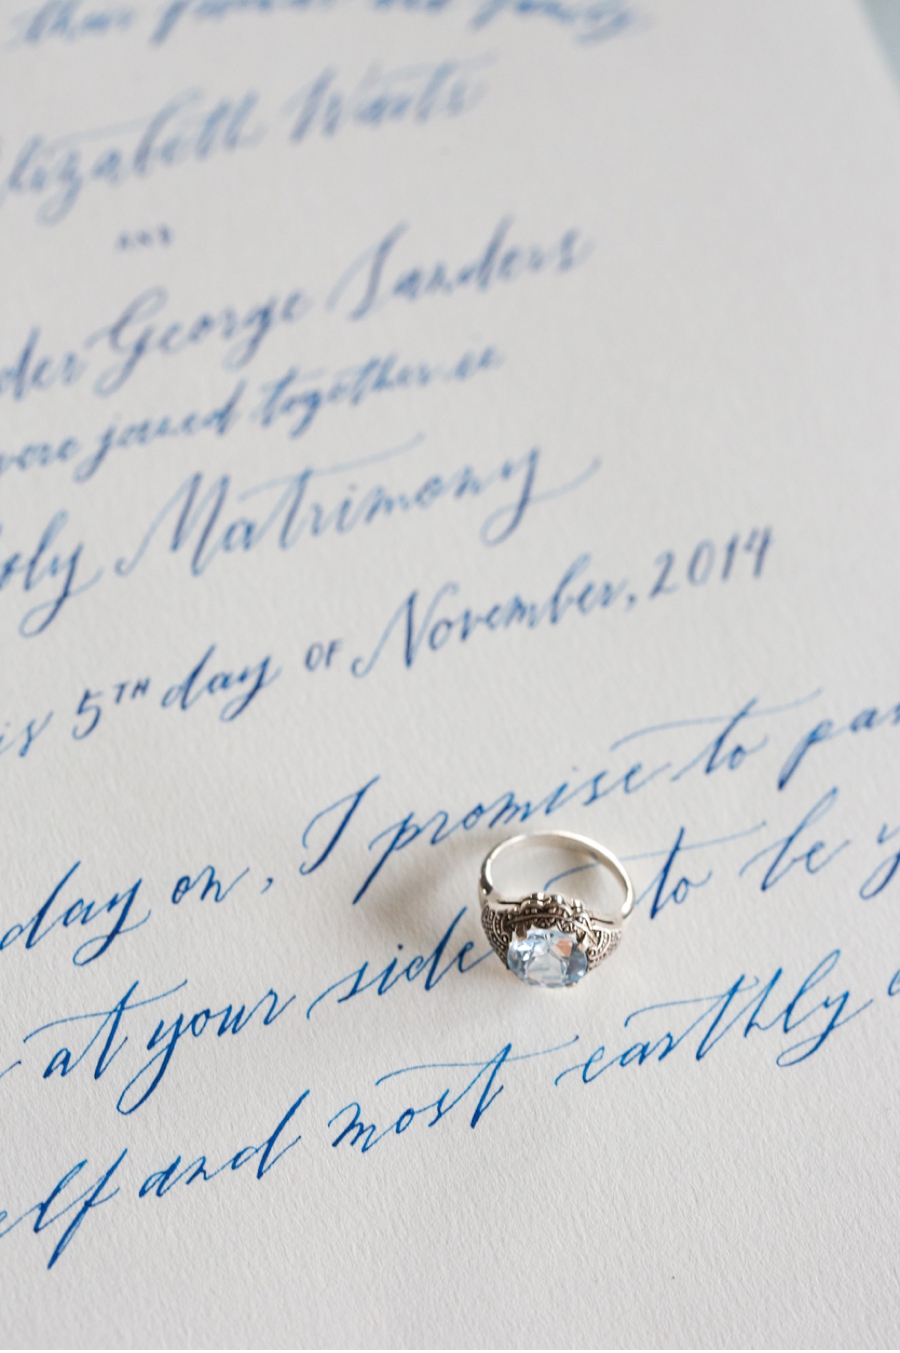 their and family
lizabeth Waits
AND
der George Sanders
were joined together in
oly Matrimony
is 5TH day OF November, 2014
day on, I promise to par
at your side to be y
elf and most earthly